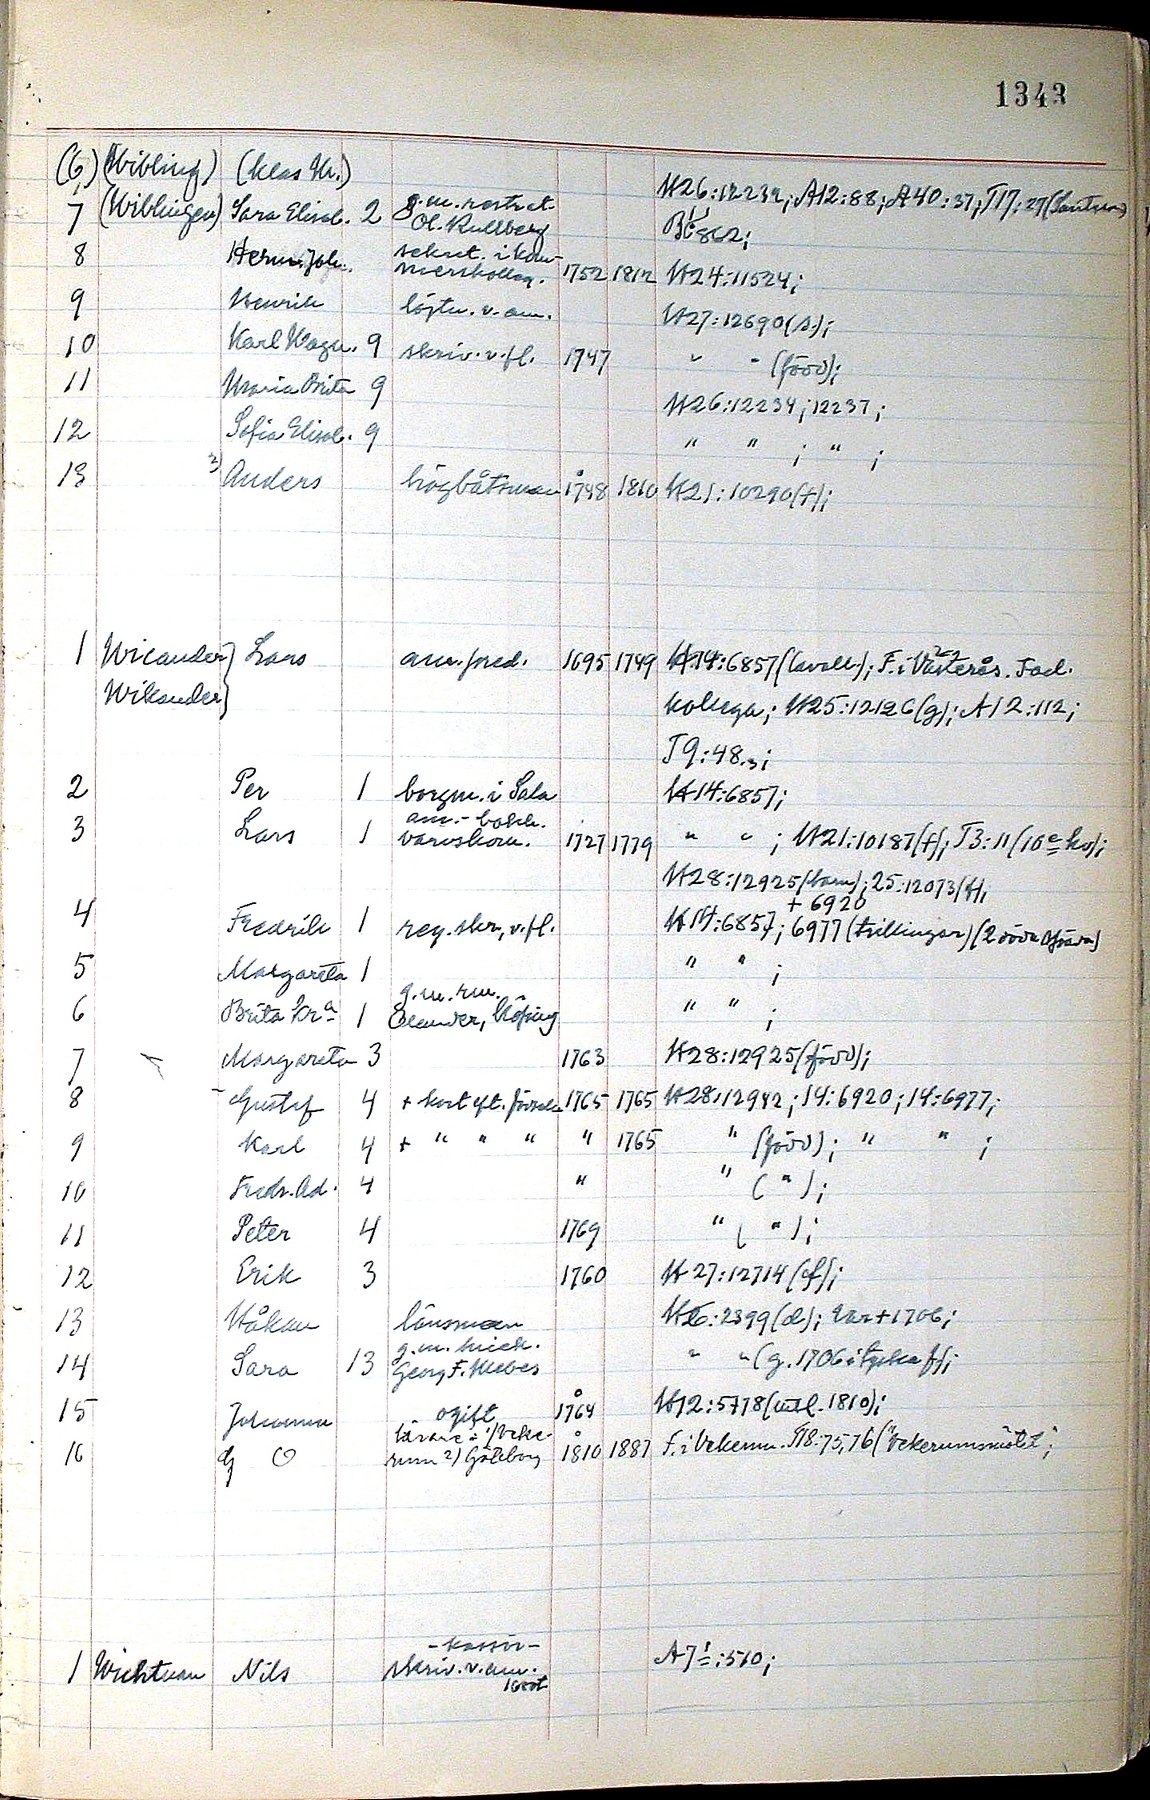 1343
(6) (Wibling) (Klas Hr.)
7 (Wiblingen) Sara Elisab. 2 g.m. Ol. Kullberg H26:12232; A12:88; A40:37; T17:27
862;
8 Herm. Joh. sekret. i kommerskolleg. 1752 1812 H24:11524;
9 Henrik löjtn. v. am. H27:12690(s);
10 Karl Magn. 9 skriv. v. fl. 1747 " " (född);
11 Maria Brita 9 H26:12234; 12237;
12 Sofia Elisab. 9 " " ; " ;
13 Anders högbåtsman 1748 1810 H21:10290(†);
1 Wicander } Lars am. pred. 1695 1749 H14:6857 (lavell.); F. i Västerås. Fad.
Wikander } kollega; H25:12126(g); A12:112;
T9:48.3;
2 Per 1 borgm. i Sala H14:6857;
3 Lars 1 am.-bokh. varvskom. 1727 1779 " " ; H21:10187(†); T3:11
H28:12925(barn); 25:12073(†),
+ 6920
4 Fredrik 1 reg. skr. v. fl. H14:6857; 6977 (trillingar)
5 Margareta 1 " " ;
6 Brita Kra 1 g.m. rm. Elander, Köping " " ;
7 Margareta 3 1763 H28:12925(född);
8 Gustaf 4 + kort eft. födseln 1765 1765 H28:12942; 14:6920; 14:6977;
9 Karl 4 + " " " " 1765 " (född); " " ;
10 Fredr. Ad. 4 " " ( " );
11 Peter 4 1769 " ( " );
12 Erik 3 1760 H27:12714(f);
13 Håkan länsman H6:2399(d); var + 1706;
14 Sara 13 g.m. Georg F. Mebes " " (g. 1706 i Tyska f);
15 Johanna ogift 1764 H12:5778(utfl. 1810);
16 G O lärare i 1) Vekerum 2) Göteborg 1810 1887 F. i Vekerum. T18:75,76 ("Vekerumsnästet";
1 Wichtman Nils - kassör - skriv. v. am. A7:510;